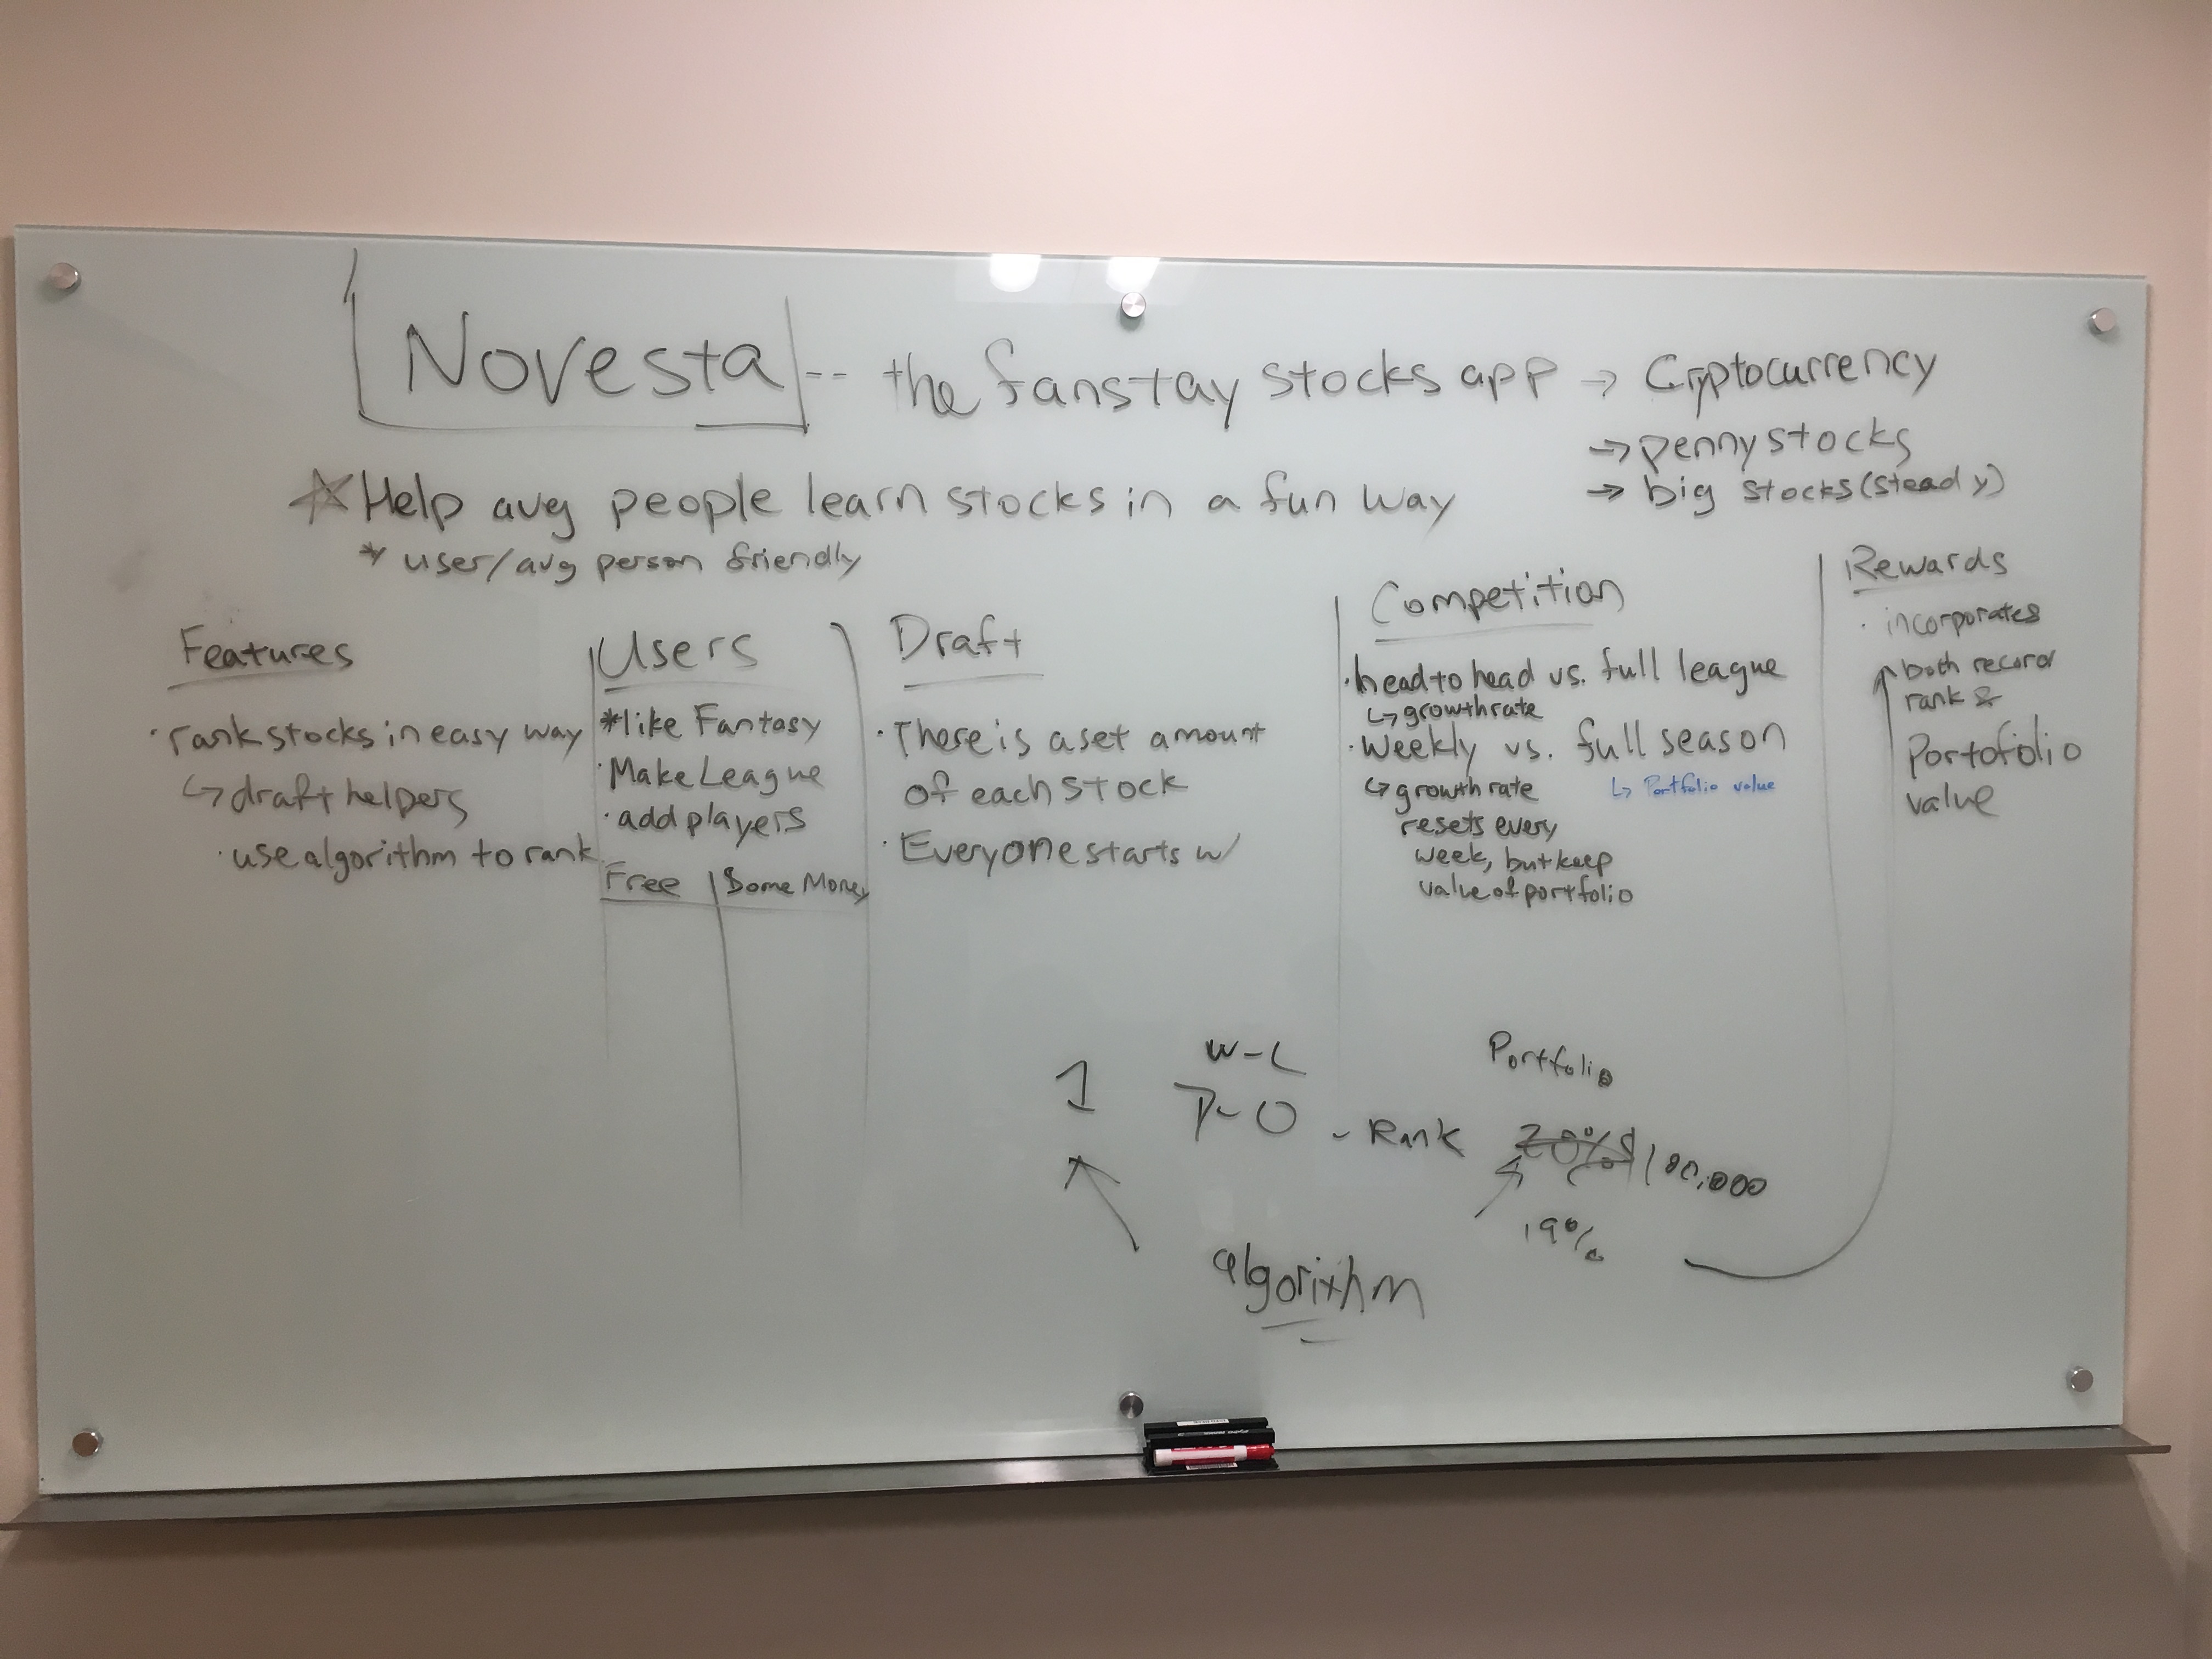 Novesta -- the fanstay stocks app → Cryptocurrency
→ penny stocks
→ big stocks (steady)
☆ Help avg people learn stocks in a fun way
* user/avg person friendly
Features
· rank stocks in easy way
↳ draft helpers
· use algorithm to rank
Users
*like Fantasy
· Make League
· add players
Free | Some Money
Draft
· There is a set amount
of each stock
· Everyone starts w/
Competition
· head to head vs. full league
↳ growth rate
· Weekly vs. full season
↳ growth rate
↳ Portfolio value
resets every
week, but keep
value of portfolio
Rewards
· incorporates
both record
rank &
Portofolio
value
W-L
Portfolio
1 7-0 - Rank 20% 100,000
19%
algorithm